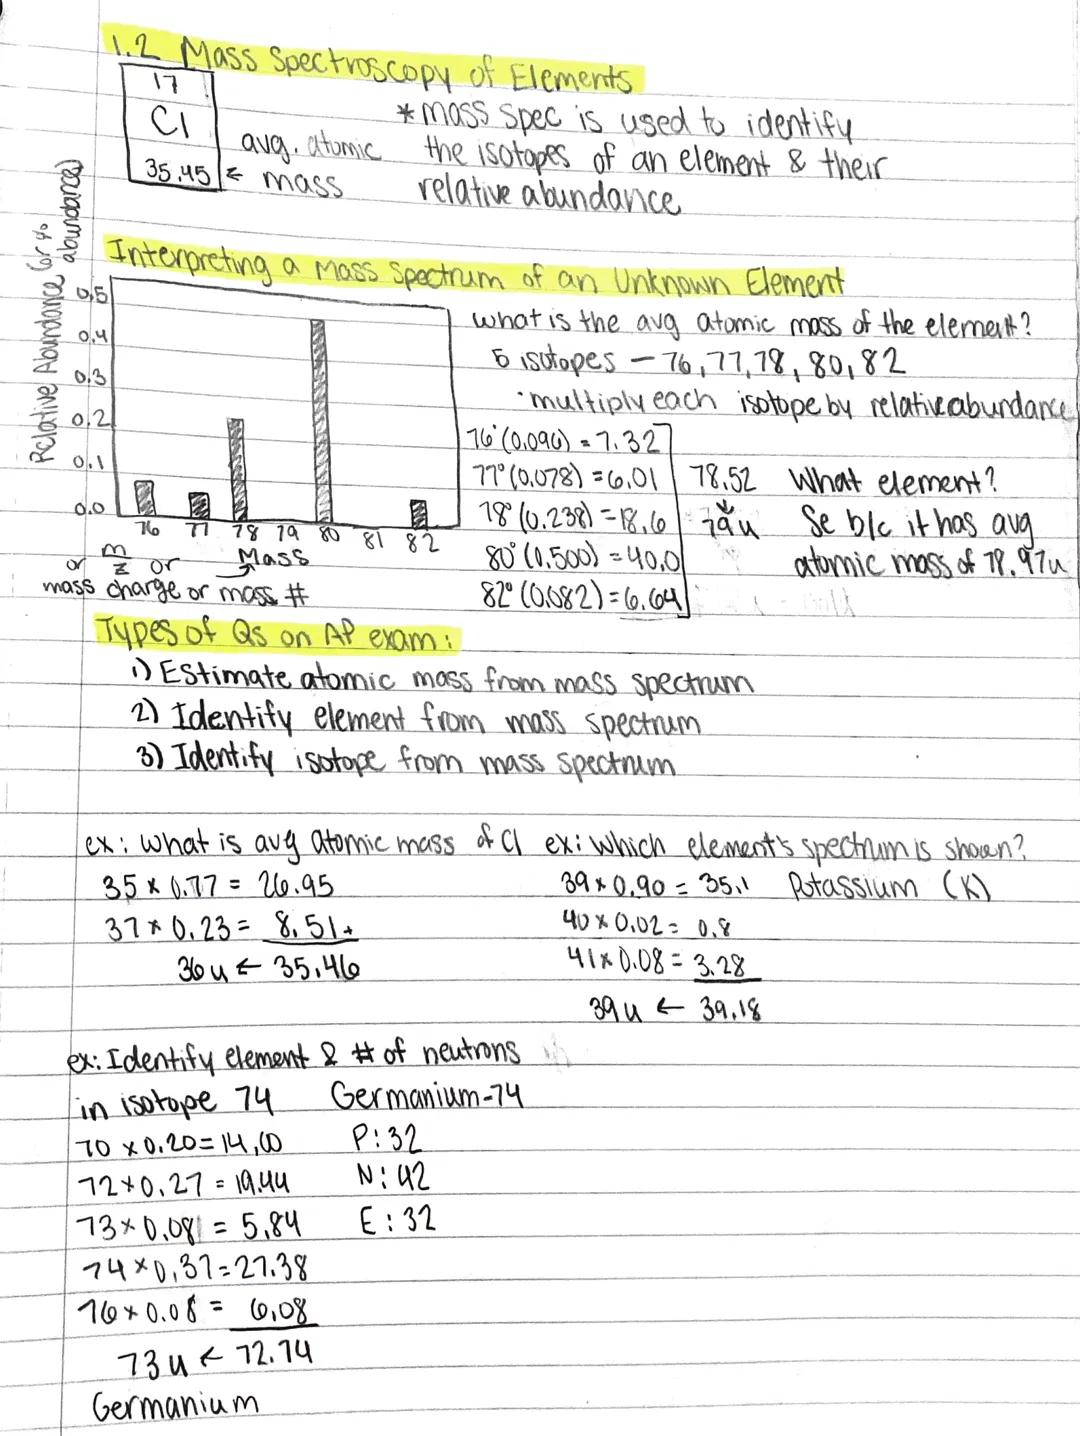 1.2 Mass Spectroscopy of Elements
17
Cl
35.45 ← avg. atomic mass
* mass spec is used to identify
the isotopes of an element & their
relative abundance
Interpreting a Mass Spectrum of an Unknown Element
Relative Abundance (or %
abundance)
0.5
0.4
0.3
0.2
0.1
0.0
76 77 78 79 80 81 82
or m/z or Mass
mass charge or mass #
what is the avg atomic mass of the element?
5 isotopes - 76, 77, 78, 80, 82
· multiply each isotope by relative abundance
76·(0.096) = 7.32
77·(0.078) = 6.01
78·(0.238) = 18.6
80·(0.500) = 40.0
82·(0.082) = 6.64
78.52
↓
79u
What element?
Se b/c it has avg
atomic mass of 78.97u
Types of Qs on AP exam:
1) Estimate atomic mass from mass spectrum
2) Identify element from mass spectrum
3) Identify isotope from mass spectrum
ex: what is avg atomic mass of Cl
35 x 0.77 = 26.95
37 x 0.23 = 8.51+
36u ← 35.46
ex: Which element's spectrum is shown?
39 x 0.90 = 35.1 Potassium (K)
40 x 0.02 = 0.8
41 x 0.08 = 3.28
39u ← 39.18
ex: Identify element & # of neutrons
in isotope 74 Germanium-74
70 x 0.20 = 14.00 P: 32
72 x 0.27 = 19.44 N: 42
73 x 0.08 = 5.84 E: 32
74 x 0.37 = 27.38
76 x 0.08 = 6.08
73u ← 72.74
Germanium